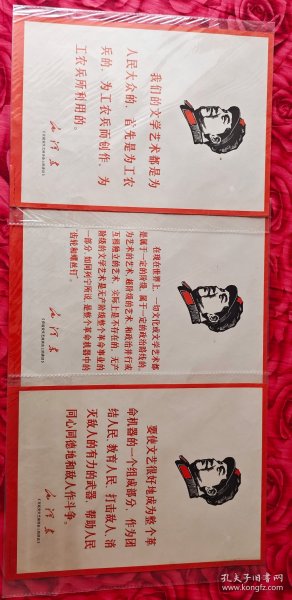 我们的文学艺术都是为
人民大众的，首先是为工农
兵的，为工农兵而创作，为
工农兵所利用的。
毛泽东
《在延安文艺座谈会上的讲话》
在现在世界上，一切文化或文学艺术都
是属于一定的阶级，属于一定的政治路线的。
为艺术的艺术，超阶级的艺术，和政治并行或
互相独立的艺术，实际上是不存在的。无产
阶级的文学艺术是无产阶级整个革命事业的
一部分，如同列宁所说，是整个革命机器中的
“齿轮和螺丝钉”。
毛泽东
《在延安文艺座谈会上的讲话》
要使文艺很好地成为整个革
命机器的一个组成部分，作为团
结人民、教育人民、打击敌人、消
灭敌人的有力的武器，帮助人民
同心同德地和敌人作斗争。
毛泽东
《在延安文艺座谈会上的讲话》
孔夫子旧书网